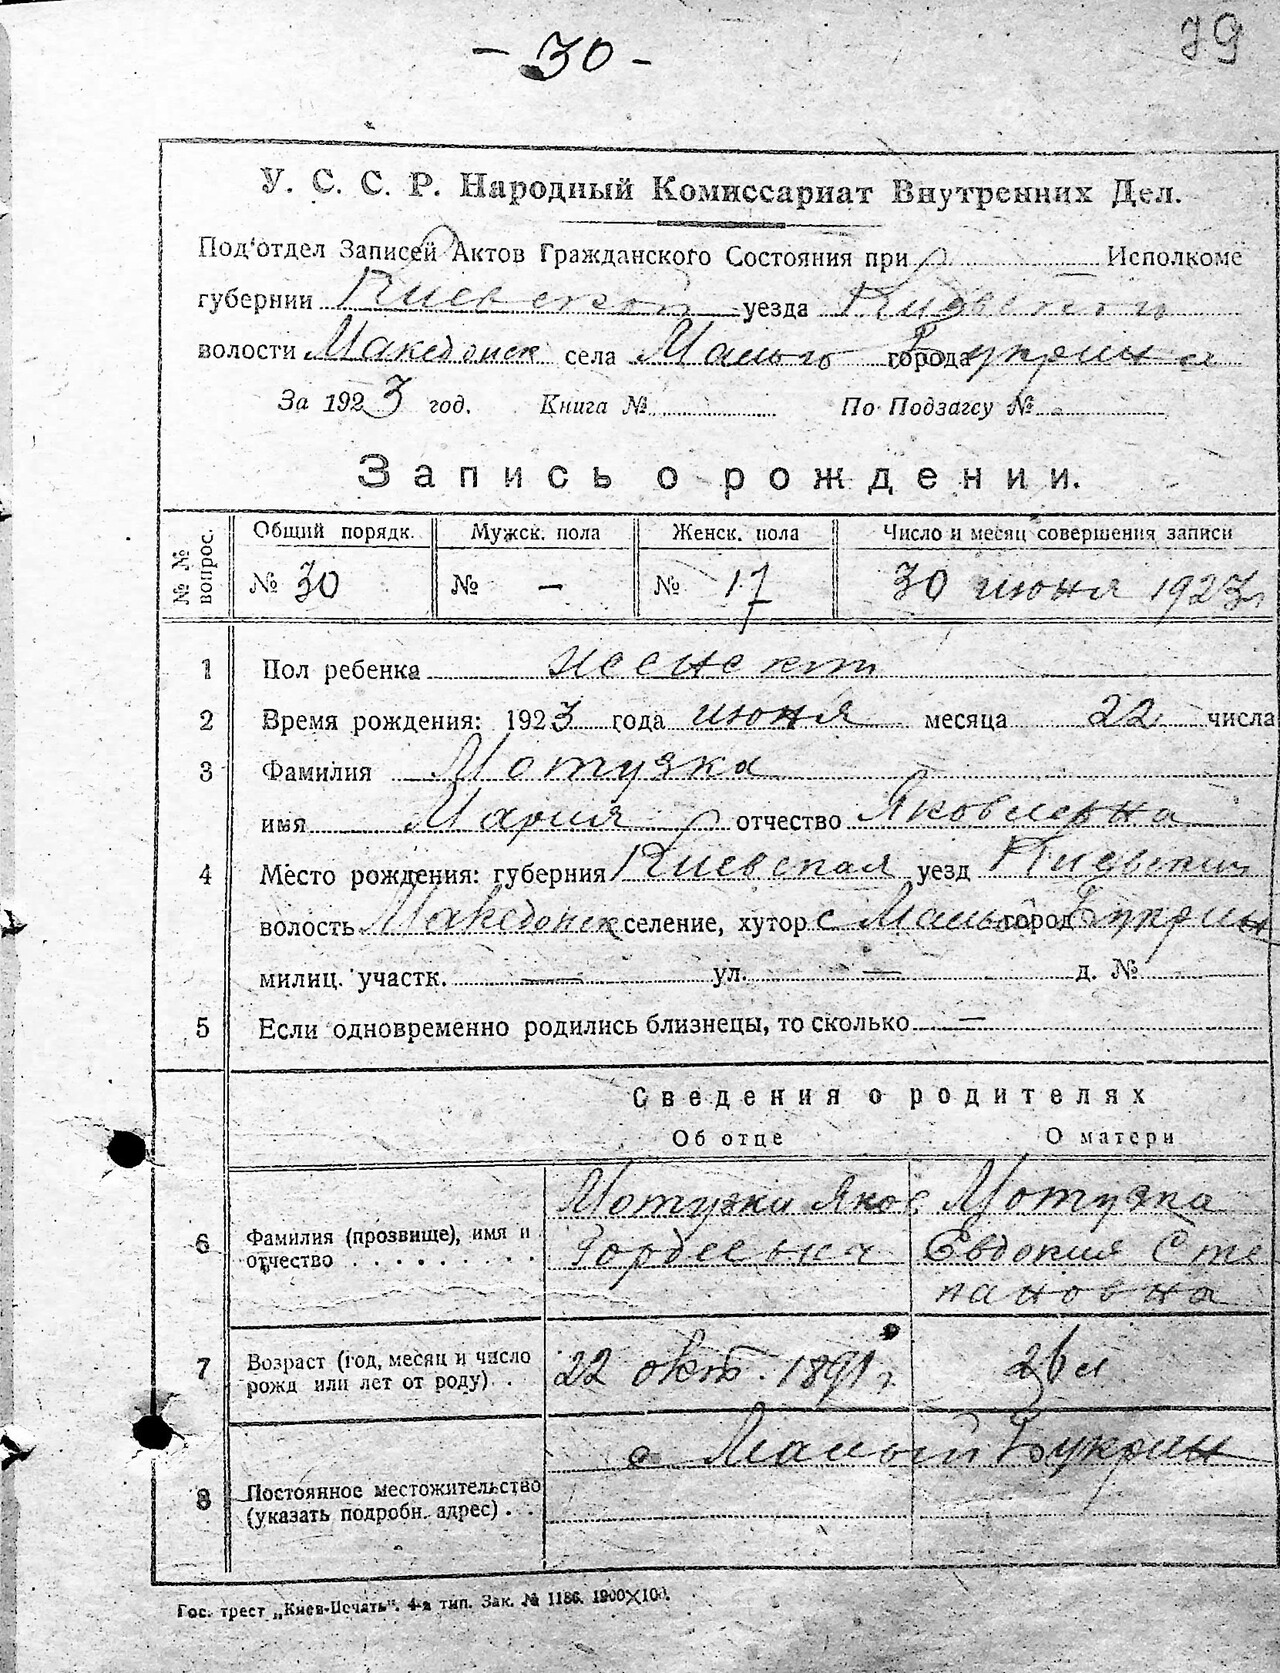 - 30 -
79
У. С. С. Р. Народный Комиссариат Внутренних Дел.
Под'отдел Записей Актов Гражданского Состояния при Исполкоме
губернии Киевской уезда Киевского
волости Македонск села Малого города Букрина
За 1923 год. Книга № По Подзагсу №
Запись о рождении.
№ № вопрос. Общий порядк. Мужск. пола Женск. пола Число и месяц совершения записи
№ 30 № — № 17 30 июня 1923г
1 Пол ребенка женский
2 Время рождения: 1923 года июня месяца 22 числа
3 Фамилия Мотузка
имя Мария отчество Яковлевна
4 Место рождения: губерния Киевская уезд Киевский
волость Македонск селение, хутор с Малый город Букрин
милиц. участк. — ул. — д. №
5 Если одновременно родились близнецы, то сколько —
Сведения о родителях
Об отце О матери
6 Фамилия (прозвище), имя и отчество . . . . . . . .
Мотузка Яков Гордеевич
Мотузка Евдокия Степановна
7 Возраст (год, месяц и число рожд или лет от роду) . .
22 окт. 1891 г. 26 л
8 Постоянное местожительство (указать подробн. адрес) . . .
с Малый Букрин
Гос. трест „Киев-Печать". 4-я тип. Зак. № 1186. 1900×100.